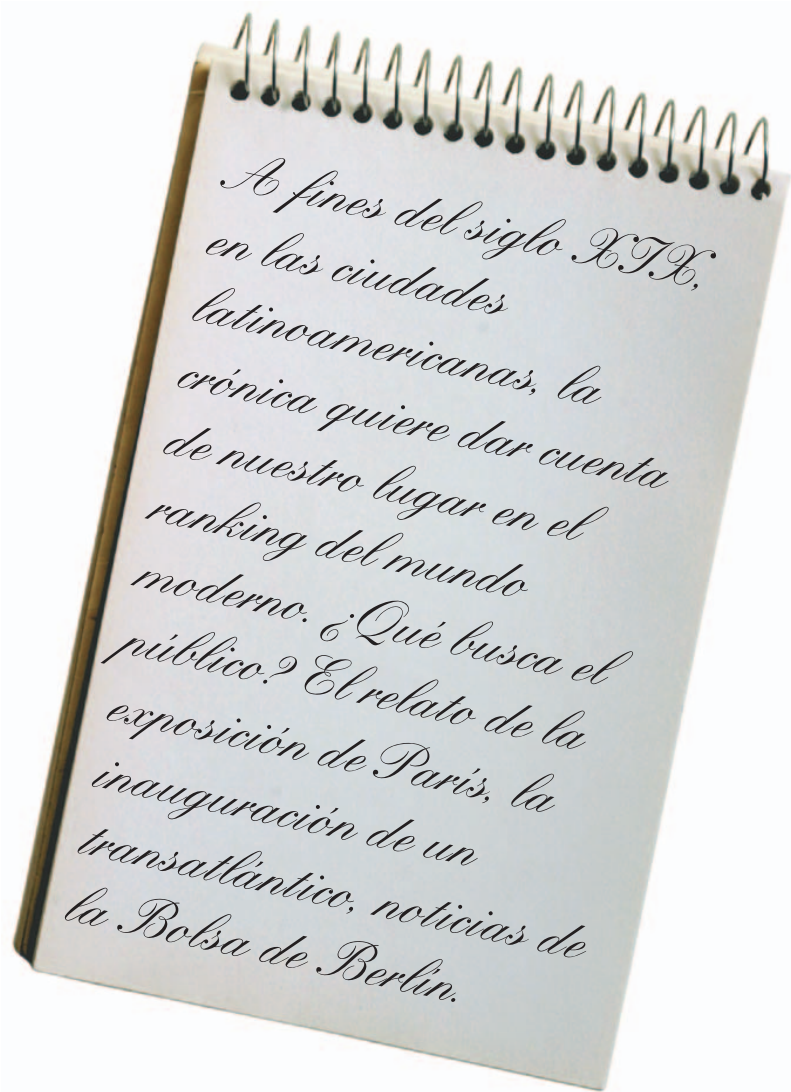 A fines del siglo XIX,
en las ciudades
latinoamericanas, la
crónica quiere dar cuenta
de nuestro lugar en el
ranking del mundo
moderno. ¿Qué busca el
público? El relato de la
exposición de París, la
inauguración de un
transatlántico, noticias de
la Bolsa de Berlín.